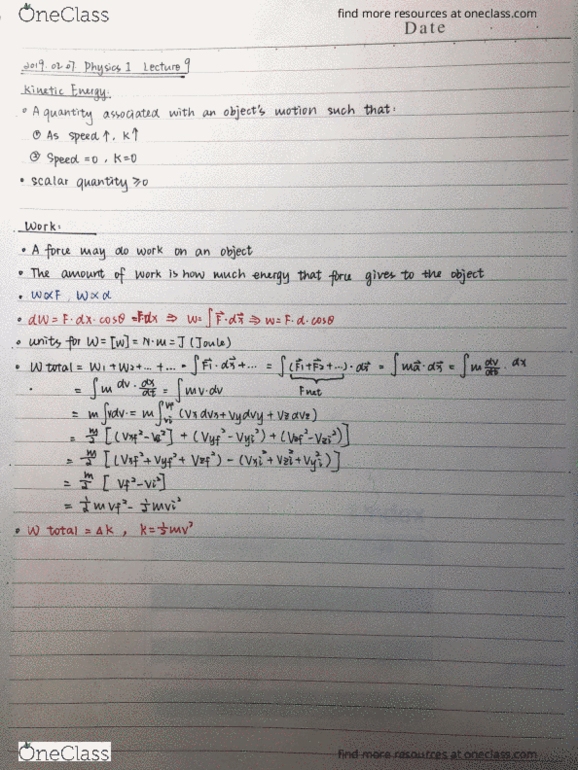 OneClass
find more resources at oneclass.com
Date
2019.02.07. Physics 1 Lecture 9
Kinetic Energy.
• A quantity associated with an object's motion such that:
① As speed ↑, K↑
② Speed =0, K=0
• scalar quantity ≥0
Work:
• A force may do work on an object
• The amount of work is how much energy that force gives to the object
• W∝F, W∝d
• dW= F·dx·cosθ =F·dx ⇒ W= ∫F⃗·dx⃗ ⇒ W= F·d·cosθ
• units for W= [W] = N·m= J (Joule)
• W total = W1 +W2+... +... = ∫F⃗1·dx⃗+... = ∫(F⃗1+F⃗2+...)·dx⃗ = ∫ma⃗·dx⃗ = ∫m dv/dt · dx
Fnet
= ∫m dv·dx/dt = ∫mv·dv
= m∫vdv = m∫vi^vf (Vx dvx+ Vydvy + Vz dvz)
= m/2 [(Vxf²-Vxi²] + (Vyf²-Vyi²) + (Vzf²-Vzi²)]
= m/2 [(Vxf²+Vyf²+ Vzf²) - (Vxi²+Vzi²+Vyi²)]
= m/2 [ Vf²-Vi²]
= 1/2 mvf² - 1/2 mvi²
• W total = ΔK , K=1/2mv²
OneClass
find more resources at oneclass.com